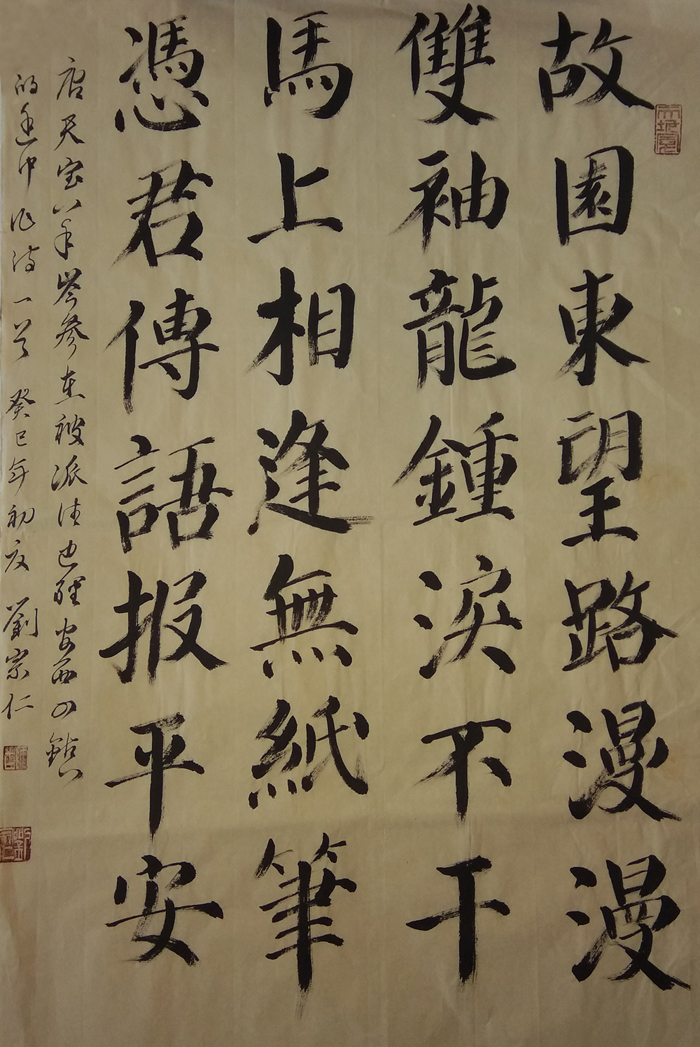 故園東望路漫漫
雙袖龍鍾淚不干
馬上相逢無紙筆
憑君傳語报平安
唐天宝八年岑參在被派往安西四鎮
的途中作诗一首 癸巳年初夏 劉宗仁